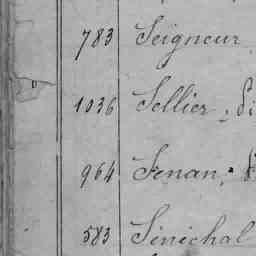 783 Seigneur
1036 Sellier,
964 Senan,
583 Sénéchal